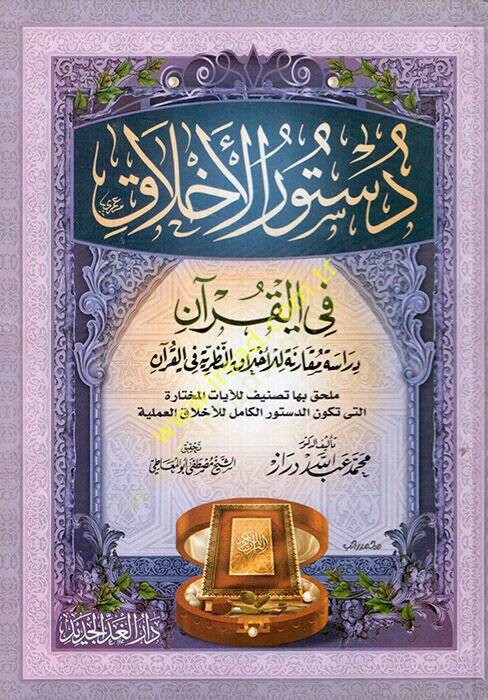 دُسْتُورُ الأَخْلَاقِ
فِي القُرآنِ
دراسة مقارنة للأخلاق النظرية في القرآن
ملحق بها تصنيف للآيات المختارة
التى تكون الدستور الكامل للأخلاق العملية
تأليف الدكتور
محمد عبد الله دراز
تحقيق
الشيخ مصطفى أبو المعاطي
القرآن الكريم
دار الغد الجديد